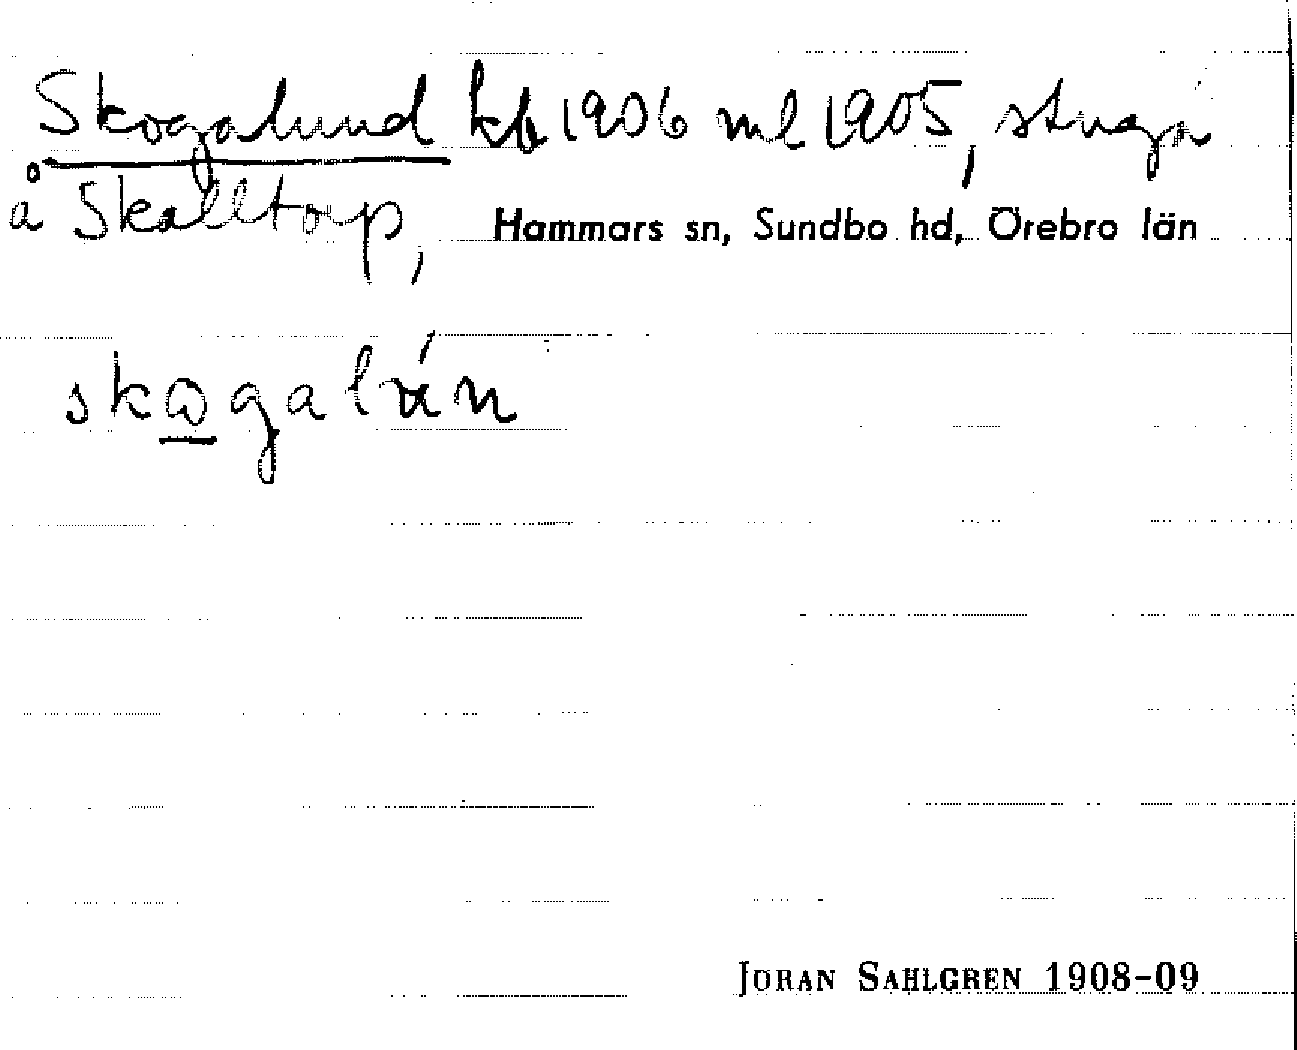 Skogalund kb 1906 ml 1905, stuga
å Skalltorp, Hammars sn, Sundbo hd, Örebro län
skωgalún
JÖRAN SAHLGREN 1908-09